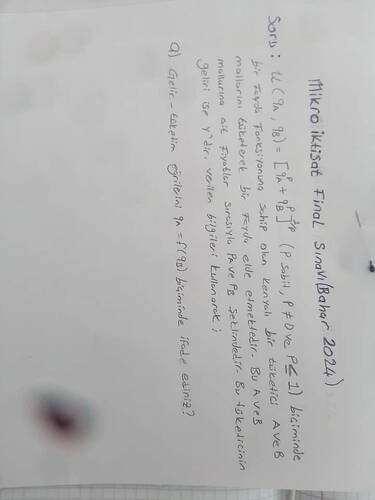 Mikro iktisat Final Sınavı(Bahar 2024)
Soru: U(qA, qB) = [qA^p + qB^p]^1/p (p sabit, p ≠ 0 ve p ≤ 1) biçiminde
bir fayda fonksiyonuna sahip olan kenyalı bir tüketici A ve B
mallarını tüketerek bir fayda elde etmektedir. Bu A ve B
mallarına ait fiyatlar sırasıyla PA ve PB şeklindedir. Bu tüketicinin
geliri ise Y'dir. verilen bilgileri kullanarak;
a) Gelir-tüketim eğrilerini qA = f(qB) biçiminde ifade ediniz?